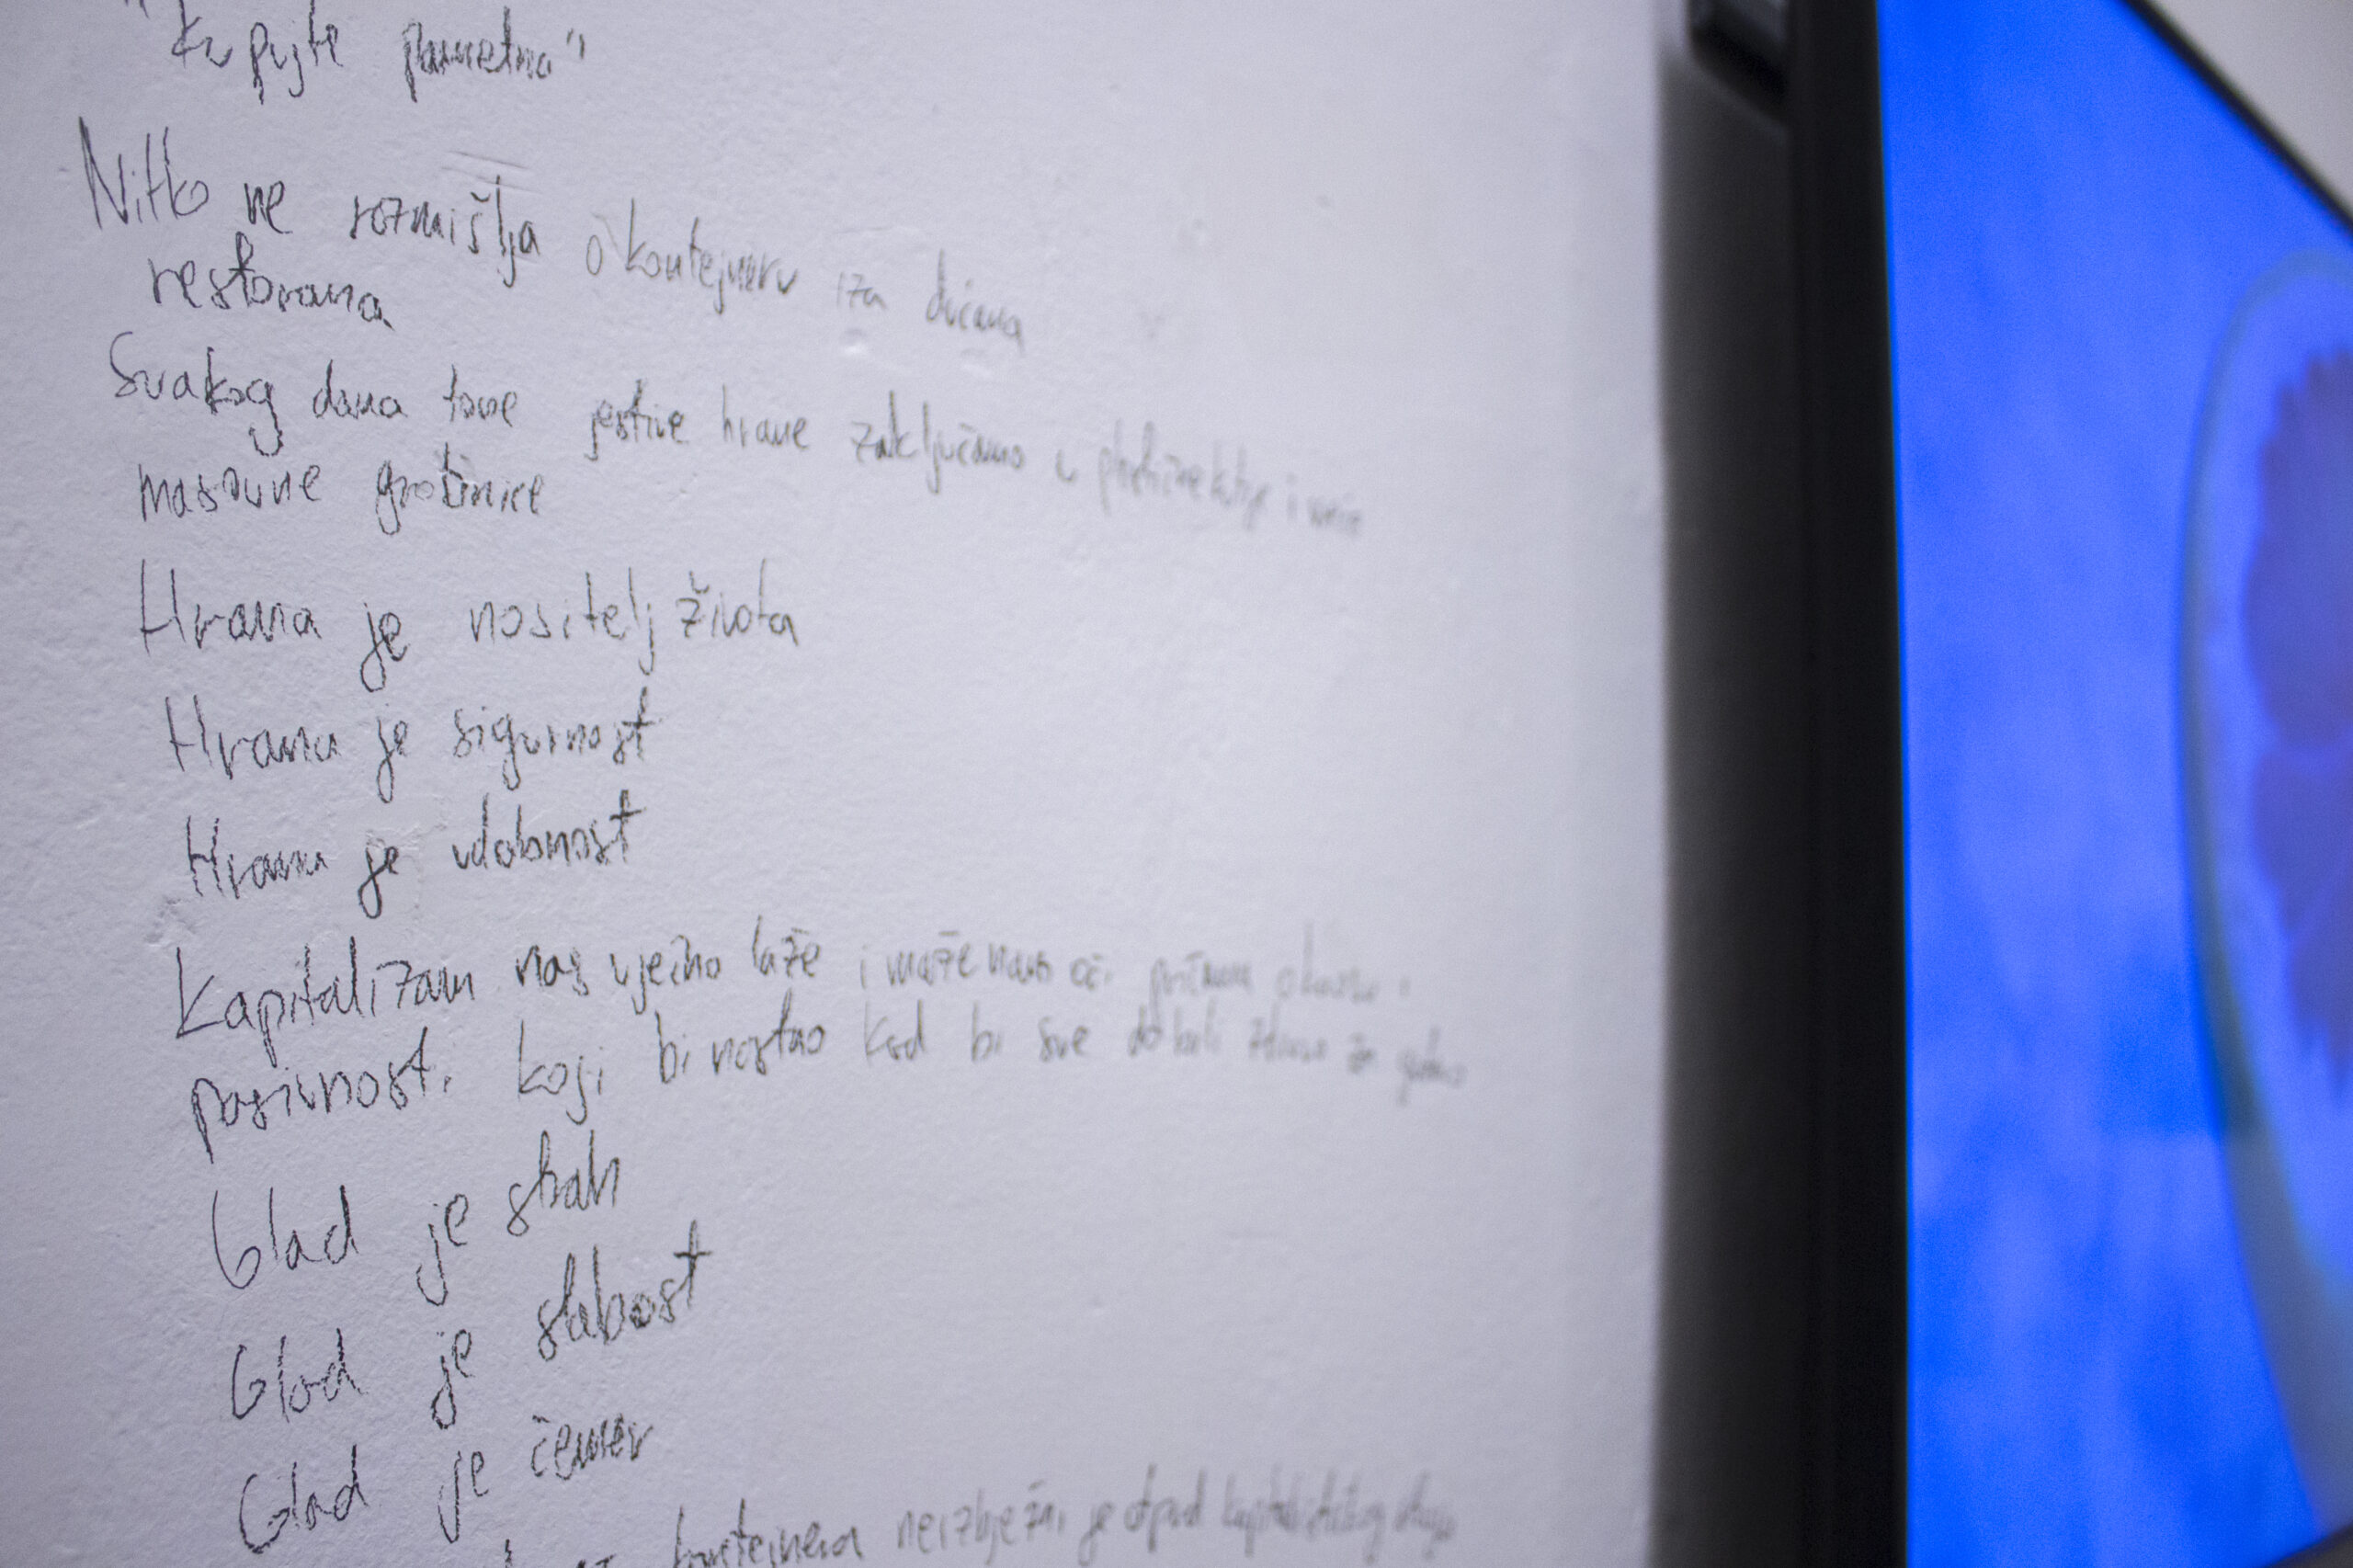 "Kupujte pametno"
Nitko ne razmišlja o kontejneru iza dućana
restorana
Svakog dana tone jestive hrane zaključamo u i
masovne grobnice
Hrana je nositelj života
Hrana je sigurnost
Hrana je udobnost
Kapitalizam nas vječno laže i maže nam oči
pasivnosti koji bi nastao kad bi sve dobili
Glad je strah
Glad je slabost
Glad je čemer
kontejnera neizbježni je otpad kapitalističkog